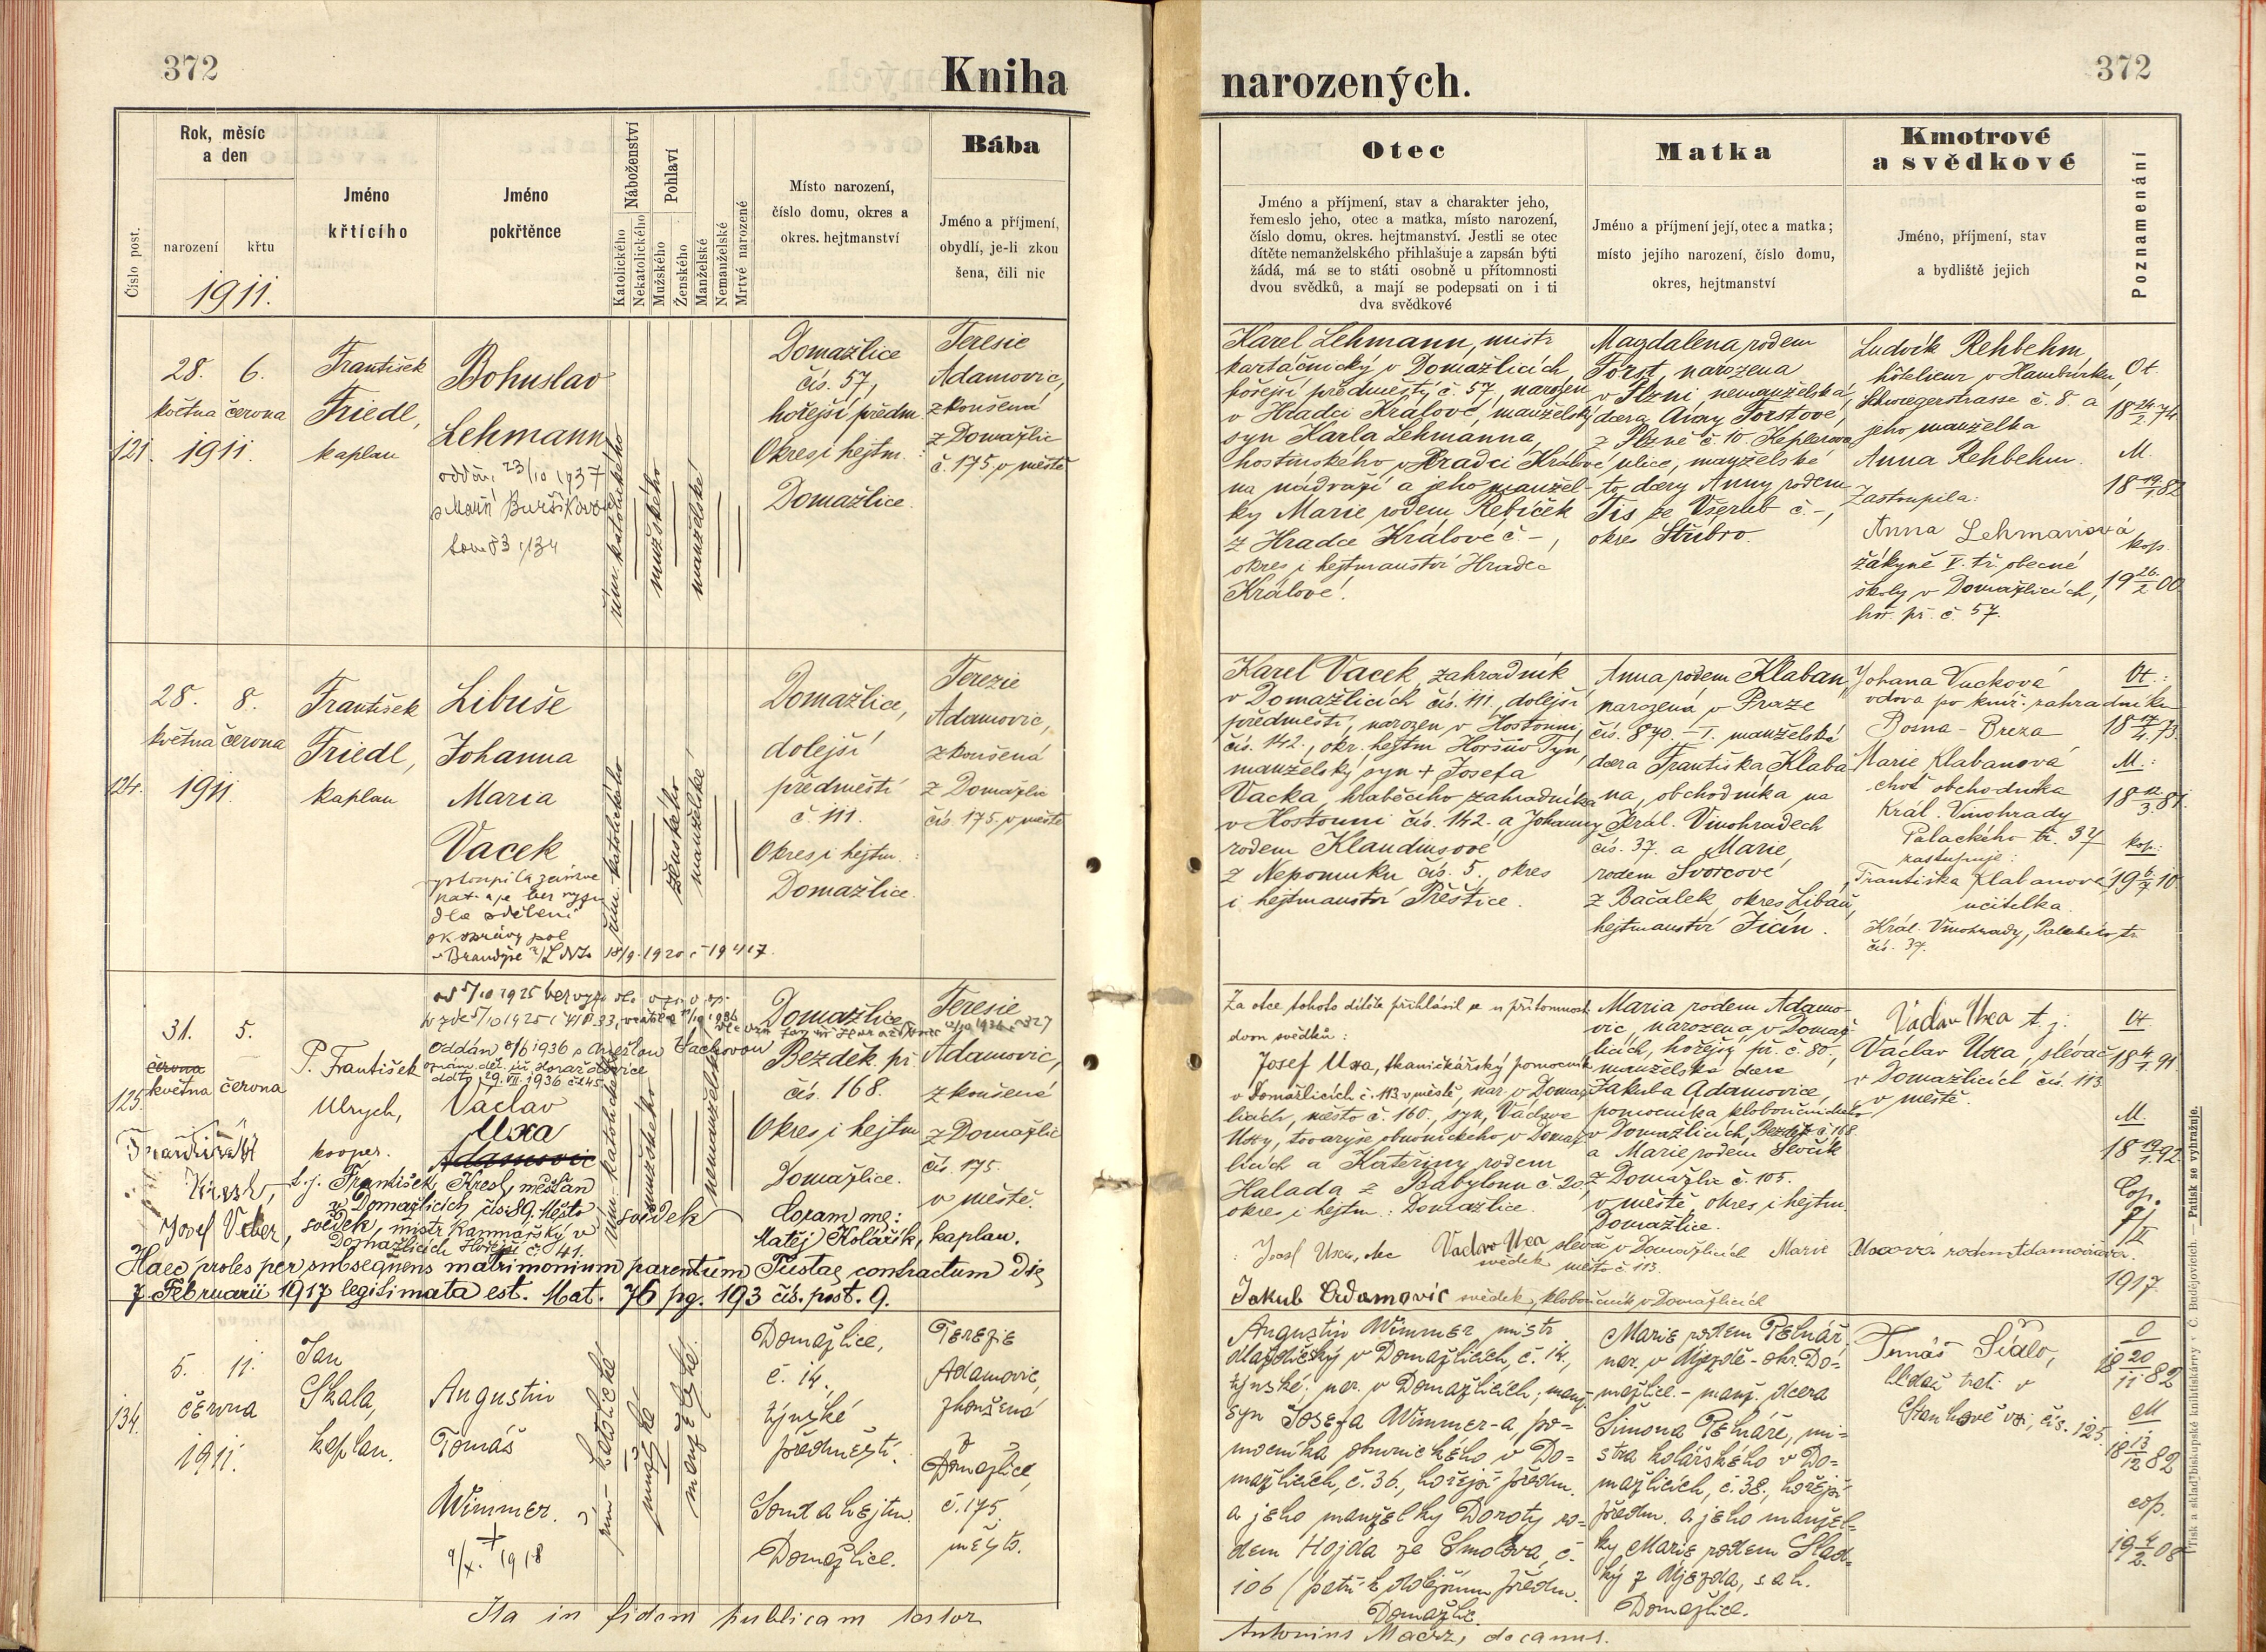 372
Kniha
narozených.
372
Rok, měsíc
a den
narození
křtu
1911.
Číslo post.
Jméno
křtícího
Jméno
pokřtěnce
Náboženství
Katolického
Nekatolického
Pohlaví
Mužského
Ženského
Manželské
Nemanželské
Mrtvě narozené
Místo narození,
číslo domu, okres a
okres. hejtmanství
Bába
Jméno a příjmení,
obydlí, je-li zkou
šena, čili nic
Otec
Jméno a příjmení, stav a charakter jeho,
řemeslo jeho, otec a matka, místo narození,
číslo domu, okres. hejtmanství. Jestli se otec
dítěte nemanželského přihlašuje a zapsán býti
žádá, má se to státi osobně u přítomnosti
dvou svědků, a mají se podepsati on i ti
dva svědkové
Matka
Jméno a příjmení její, otec a matka;
místo jejího narození, číslo domu,
okres, hejtmanství
Kmotrové
a svědkové
Jméno, příjmení, stav
a bydliště jejich
Poznamenání
121.
28. 6.
května června
1911.
František
Friedl,
kaplan
Bohuslav
Lehmann
oddán 23/10 1937
řím. katolického
mužského
manželské
Domažlice
čís. 57,
hořejší předm.
Okres i hejtm.:
Domažlice.
Teresie
Adamovic,
zkoušená
z Domažlic
č. 175 v městě
Karel Lehmann, mistr
kartáčnický v Domažlicích,
hořejší předměstí č. 57, narozen
v Hradci Králové, manželský
syn Karla Lehmanna,
hostinského v Hradci Králové
na nádraží a jeho manžel-
ky Marie rodem Řebíček
z Hradce Králové č. -,
okres i hejtmanství Hradec
Králové.
Magdalena rodem
Först, narozena
v Plzni, nemanželská
dcera Anny Förstové,
z Plzně č. 10 Keplerova
ulice, manželské
to dcery Anny rodem
Tis ze Všerub č. -,
okres Stříbro.
Ludvík Rehbehm,
hôtelieur v Hamburku,
č. 8. a
jeho manželka
Anna Rehbehm.
Zastoupila:
Anna Lehmanová
žákyně V. tř. obecné
školy v Domažlicích,
hoř. př. č. 57.
Ot.
18 24/2 74
M.
18 19/1 82
kop.
19 26/2 00
124.
28. 8.
května června
1911.
František
Friedl,
kaplan
Libuše
Johanna
Maria
Vacek
dle sdělení
ok správy pol
v Brandýse n/L
řím. katolického
ženského
manželské
Domažlice,
dolejší
předměstí
č. 111.
Okres i hejtm.:
Domažlice.
Terezie
Adamovic,
zkoušená
z Domažlic
čís. 175. v městě
Karel Vacek, zahradník
v Domažlicích čís. 111, dolejší
předměstí, narozen v Hostouni,
čís. 142., okr. hejtm Horšův Týn,
manželský syn + Josefa
Vacka, hraběcího zahradníka
v Hostouni čís. 142. a Johanny
rodem Klaudusové
z Nepomuku čís. 5., okres
i hejtmanství Přeštice.
Anna rodem Klaban,
narozená v Praze
čís. 870. - I. manželská
dcera Františka Klaba-
na, obchodníka na
Král. Vinohradech
čís. 37. a Marie,
rodem Švorcové
z Bačalek, okres Libáň,
hejtmanství Jičín.
Johana Vacková
vdova po kníž. zahradníku
Marie Klabanová
choť obchodníka
Král. Vinohrady
Palackého tř. 37
zastupuje:
Františka Klabanova
učitelka.
Král. Vinohrady, Palackého tř.
čís. 37.
Ot.:
M.:
18 12/3 81.
kop.:
19 6/7 10.
125.
31. 5.
června
května června
P. František
Ulrych,
kooper.
Oddán 8/6 1936 s Anežkou Vachovou
Václav
Uxa
Adamovic
řím. katolického
mužského
nemanželské
Domažlice
Bezděk. př.
čís. 168.
Okres i hejtm
Domažlice.
Teresie
Adamovic,
zkoušená
z Domažlic
čís. 175.
v městě.
František
Kresl,
t. j. František Kresl, měšťan
v Domažlicích čís. 89. Město
svědek
Josef Veber,
svědek, mistr kamnářský v
Domažlicích Hořejší č. 41.
Coram me:
Matěj Kolářík, kaplan.
Haec proles per subsequens matrimonium parentum Tustae contractum die
7 Februarii 1917 legitimata est. Mat. 76 pg. 193 čís. post. 9.
Za otce tohoto dítěte přihlásil se u přítomnosti
dvou svědků:
Josef Uxa, tkaničkářský pomocník
v Domažlicích č. 113 v městě, nar. v Domaž-
licích, město č. 160., syn Václava
Uxy, tovaryše obuvnického v Domaž-
licích a Kateřiny rodem
Halada z Babylonu č. 20,
okres i hejtm.: Domažlice.
Maria rodem Adamo-
vic, narozena v Domaž-
licích, hořejší př. č. 80.,
manželská dcera
Jakuba Adamovice,
pomocníka kloboučnického
v Domažlicích, Bezděk. č. 168
a Marie rodem Ševčík
z Domažlic č. 105.
v městě, okres i hejtm.
Domažlice.
Václav Uxa t. j.
Václav Uxa, slévač
v Domažlicích čís. 113
v městě.
Ot
18 4/1 91
M.
18 19/1 92
Cop.
7/II
1917.
Josef Uxa, otec Václav Uxa slévač v Domažlicích Marie Uxová rodem Adamovicova.
svědek město č 113.
Jakub Adamovic svědek, kloboučník v Domažlicích
134.
5. 11.
června
1911.
Jan
Skala,
kaplan.
Augustin
Tomáš
Wimmer.
+
9/X. 1918
řím- katolické
mužské
manželské.
Domažlice,
č. 14,
týnské
předměstí.
Soud a hejtm.
Domažlice.
Terezie
Adamovic,
zkoušená
z
Domažlic,
č. 175.
město.
Augustin Wimmer, mistr
dlaždičský v Domažlicích, č. 14.,
týnské; nar. v Domažlicích; manž.
syn Josefa Wimmer-a, po-
mocníka obuvnického v Do-
mažlicích, č. 36., hořejší předm.
a jeho manželky Doroty ro-
dem Hojda ze Smolova, č.
106 (patří k dolejšímu předm.
Domažlic
Marie rodem Pelnář
nar. v Újezdě - okr. Do-
mažlice. - manž. dcera
Šimona Pelnáře, mi-
stra kolářského v Do-
mažlicích, č. 38., hořejší
předm. a jeho manžel-
ky Marie rodem Slad-
ký z Újezda, s. a h.
Domažlice.
Tomáš
hlídač trati v
Staňkově ves, čís. 125.
O
18 20/11 82
M
18 13/12 82
cop.
19 4/2 08
Ita in fidem publicam testor
Antonius decanus.
Tisk a sklad biskupské knihtiskárny v Č. Budějovicích. — Patisk se vyhražuje.